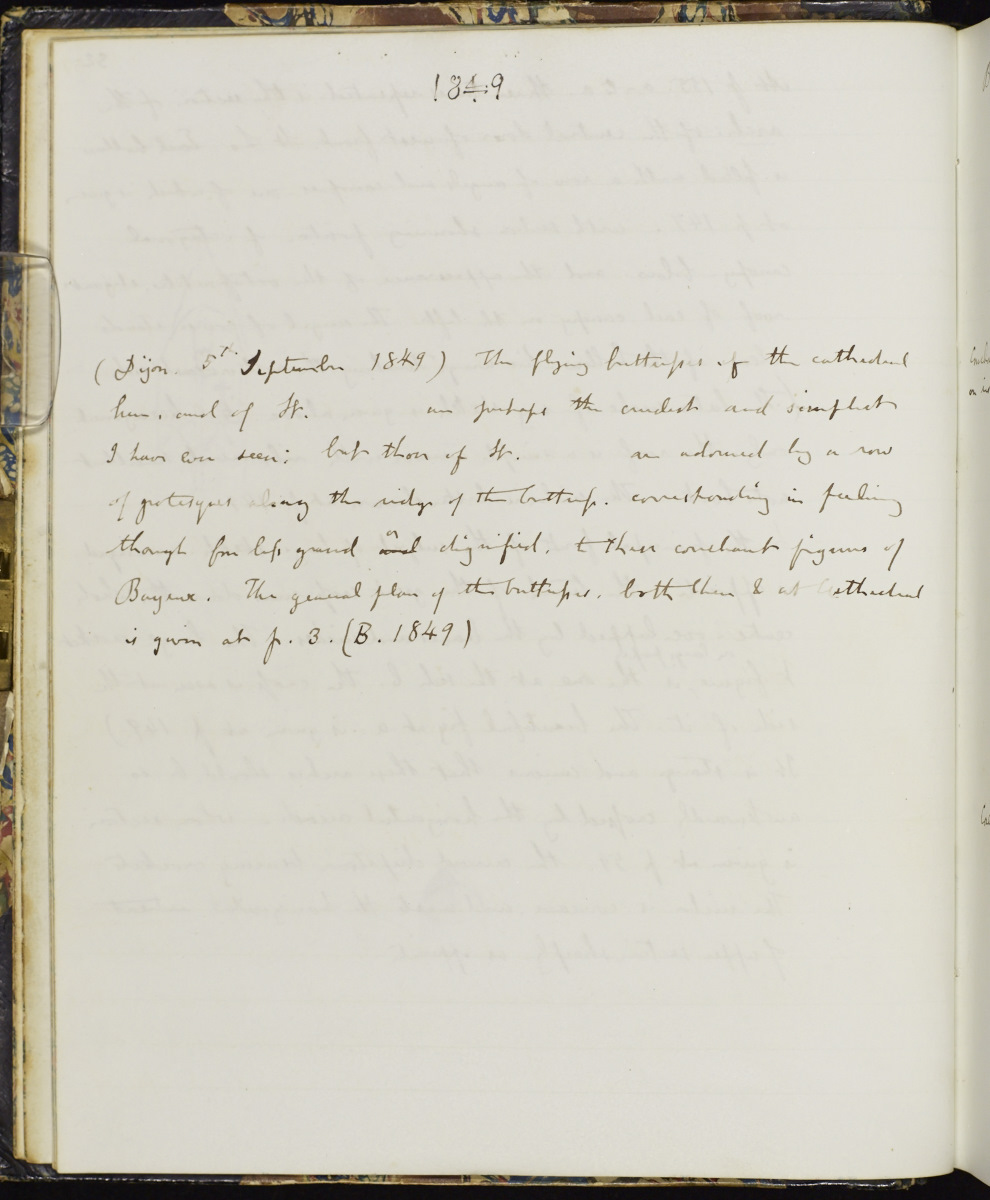 1849
(Dijon. 5th September 1849) The flying buttresses of the cathedral
here, and of St. are perhaps the rudest and simplest
I have ever seen: but those of St. are adorned by a row
of grotesques along the ridge of the buttress. corresponding in feeling
though far less grand and dignified. to these couchant figures of
Bayeux. The general plan of the buttresses, both there & at Cathedral
is given at p. 3. (B. 1849)